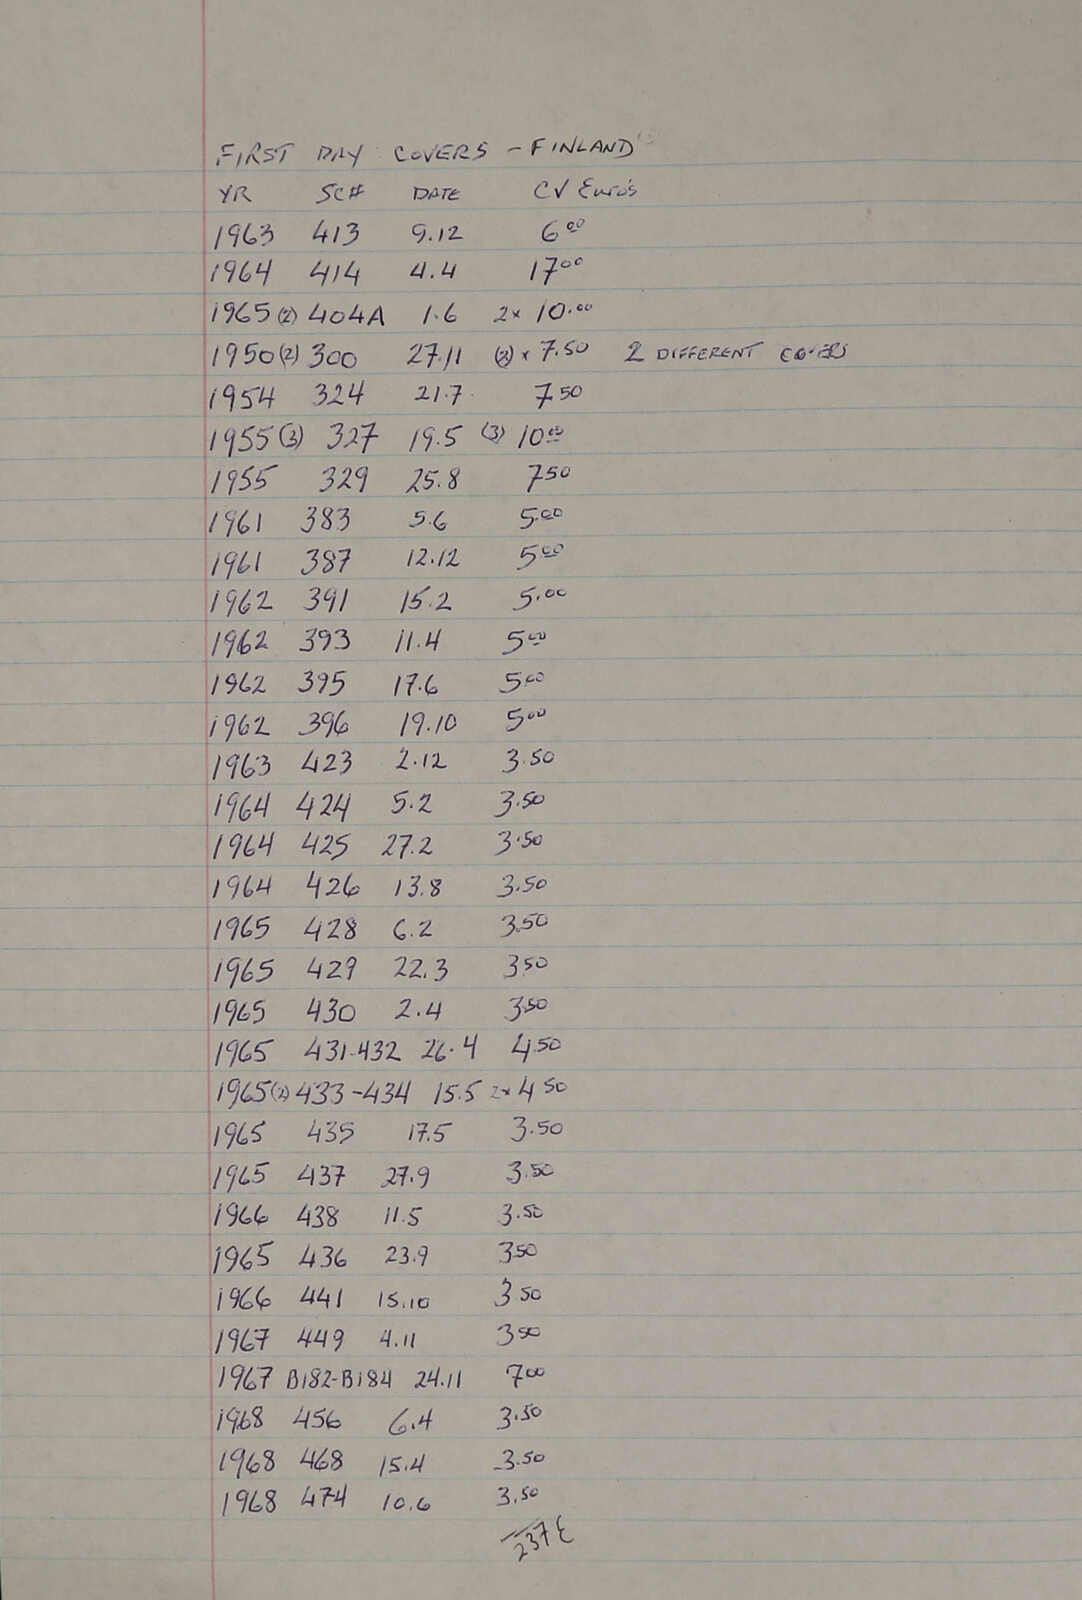 FIRST DAY COVERS - FINLAND
YR SC# DATE CV Euro's
1963 413 9.12 6 00
1964 414 4.4 17 00
1965 (2) 404A 1.6 2x 10.00
1950 (2) 300 27.11 (2) x 7.50 2 DIFFERENT COVERS
1954 324 21.7 7.50
1955 (3) 327 19.5 (3) 10 00
1955 329 25.8 7 50
1961 383 5.6 5.00
1961 387 12.12 5 00
1962 391 15.2 5.00
1962 393 11.4 5 00
1962 395 17.6 5 00
1962 396 19.10 5 00
1963 423 2.12 3.50
1964 424 5.2 3.50
1964 425 27.2 3.50
1964 426 13.8 3.50
1965 428 6.2 3.50
1965 429 22.3 3 50
1965 430 2.4 3.50
1965 431-432 26.4 4.50
1965 (2) 433-434 15.5 2x 4 50
1965 435 17.5 3.50
1965 437 27.9 3.50
1966 438 11.5 3.50
1965 436 23.9 3 50
1966 441 15.10 3 50
1967 449 4.11 3 50
1967 B182-B184 24.11 7 00
1968 456 6.4 3.50
1968 468 15.4 3.50
1968 474 10.6 3.50
237 €